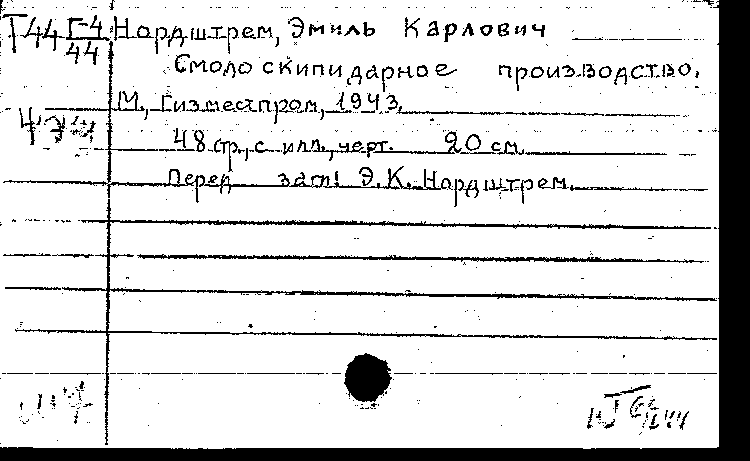 Т44 Г-4/44 Нордштрем, Эмиль Карлович
Смолоскипидарное производство.
М., Гизместпром, 1943.
48 стр., с илл., черт. 20 см.
Перед загл: Э.К. Нордштрем.